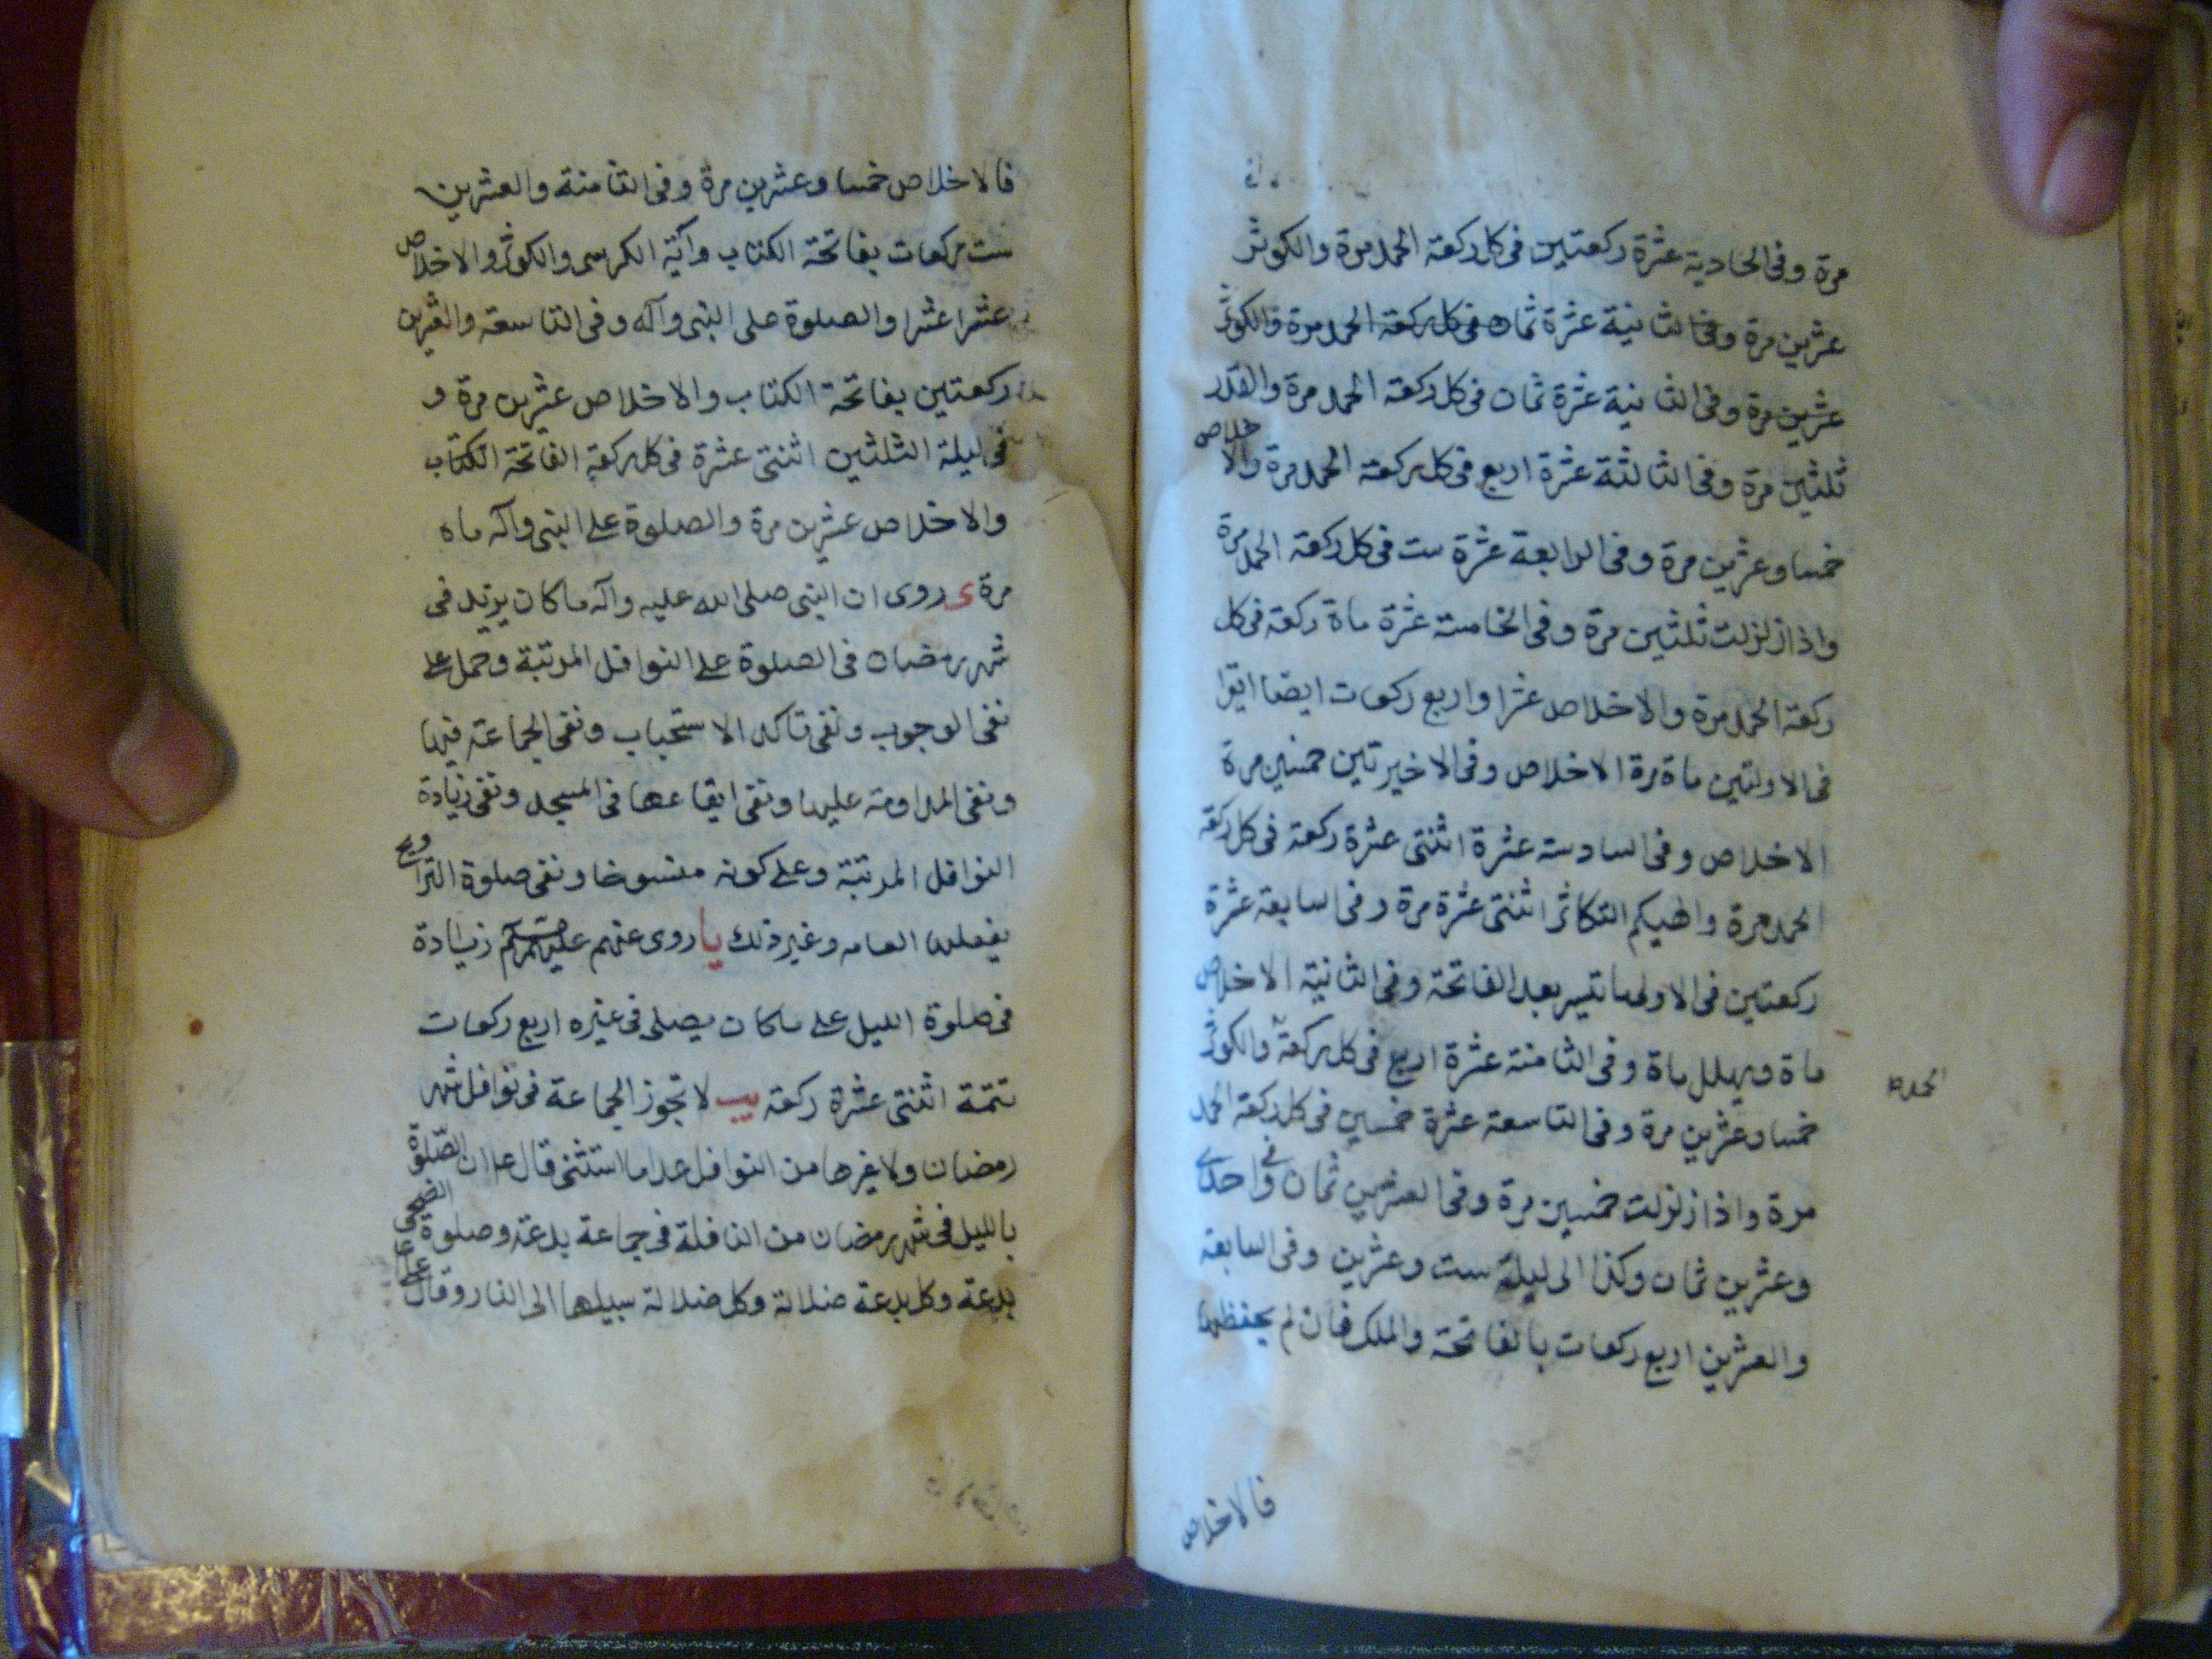 مرة وفى الحادية عشرة ركعتين فى كل ركعة الحمد مرة والكوثر
عشرين مرة وفى الثانية عشرة ثمان فى كل ركعة الحمد مرة والكوثر
عشرين مرة وفى الثانية عشرة ثمان فى كل ركعة الحمد مرة والقدر
ثلثين مرة وفى الثالثة عشرة اربع فى كل ركعة الحمد مرة والاخلاص
خمسا وعشرين مرة وفى الرابعة عشرة ست فى كل ركعة الحمد مرة
واذا زلزلت ثلثين مرة وفى الخامسة عشرة ماة ركعة فى كل
ركعة الحمد مرة والاخلاص عشرا واربع ركعات ايضا
فى الاولتين ماة مرة الاخلاص وفى الاخيرتين خمسين مرة
الاخلاص وفى السادسة عشرة اثنتى عشرة ركعة فى كل ركعة
الحمد مرة والهيكم التكاثر اثنتى عشرة مرة وفى السابعة عشرة
ركعتين فى الاولى ما تيسر بعد الفاتحة وفى الثانية الاخلاص
ماة ويهلل ماة وفى الثامنة عشرة اربع فى كل ركعة والكوثر
الحمد
خمسا وعشرين مرة وفى التاسعة عشرة خمسين فى كل ركعة الحمد
مرة واذا زلزلت خمسين مرة وفى العشرين ثمان وفى احدى
وعشرين ثمان وكذا الى ليلة ست وعشرين وفى السابعة
والعشرين اربع ركعات بالفاتحة والملك فان لم يحفظها
فالاخلاص
فالاخلاص خمسا وعشرين مرة وفى الثامنة والعشرين
ست ركعات بفاتحة الكتاب وآية الكرسى والكوثر والاخلاص
عشرا عشرا والصلوة على النبى وآله وفى التاسعة والعشرين
ركعتين بفاتحة الكتاب والاخلاص عشرين مرة و
فى ليلة الثلثين اثنتى عشرة فى كل ركعة الفاتحة الكتاب
والاخلاص عشرين مرة والصلوة على النبى وآله ماه
مرة ى روى ان النبى صلى الله عليه وآله ما كان يزيد فى
شهر رمضان فى الصلوة على النوافل المرتبة وحمل على
نفى الوجوب ونفى تاكد الاستحباب ونفى الجماعة فيها
ونفى المداومة عليها ونفى ايقاعها فى المسجد ونفى زيادة
النوافل المرتبة وعلى كونه منسوخا ونفى صلوة التراويح
يفعلها العامه وغير ذلك يا روى عنهم زيادة
فى صلوة الليل على ما كان يصلى فى غيره اربع ركعات
تتمة اثنتى عشرة ركعة يب لا تجوز الجماعة فى نوافل شهر
رمضان ولا غيرها من النوافل عدا ما استثنى قال ع ان الصلوة
بالليل فى شهر رمضان من النافلة فى جماعة بدعة وصلوة الضحى
بدعة وكل بدعة ضلالة وكل ضلالة سبيلها الى النار وقال